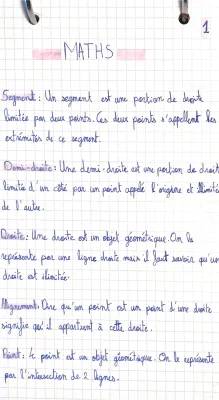 1
MATHS
Segment : Un segment est une portion de droite
limitée par deux points. Ces deux points s'appellent les
extrémités de ce segment.
Demi-droite : Une demi-droite est une portion de droit
limitée d'un côté par un point appelé l'origine et illimité
de l'autre.
Droite : Une droite est un objet géométrique. On la
représente par une ligne droite mais il faut savoir qu'un
droite est illimitée.
Alignement. Dire qu'un point est un point d'une droite
signifie qu'il appartient à cette droite.
Point : Le point est un objet géométrique. On le représente
par l'intersection de 2 lignes.